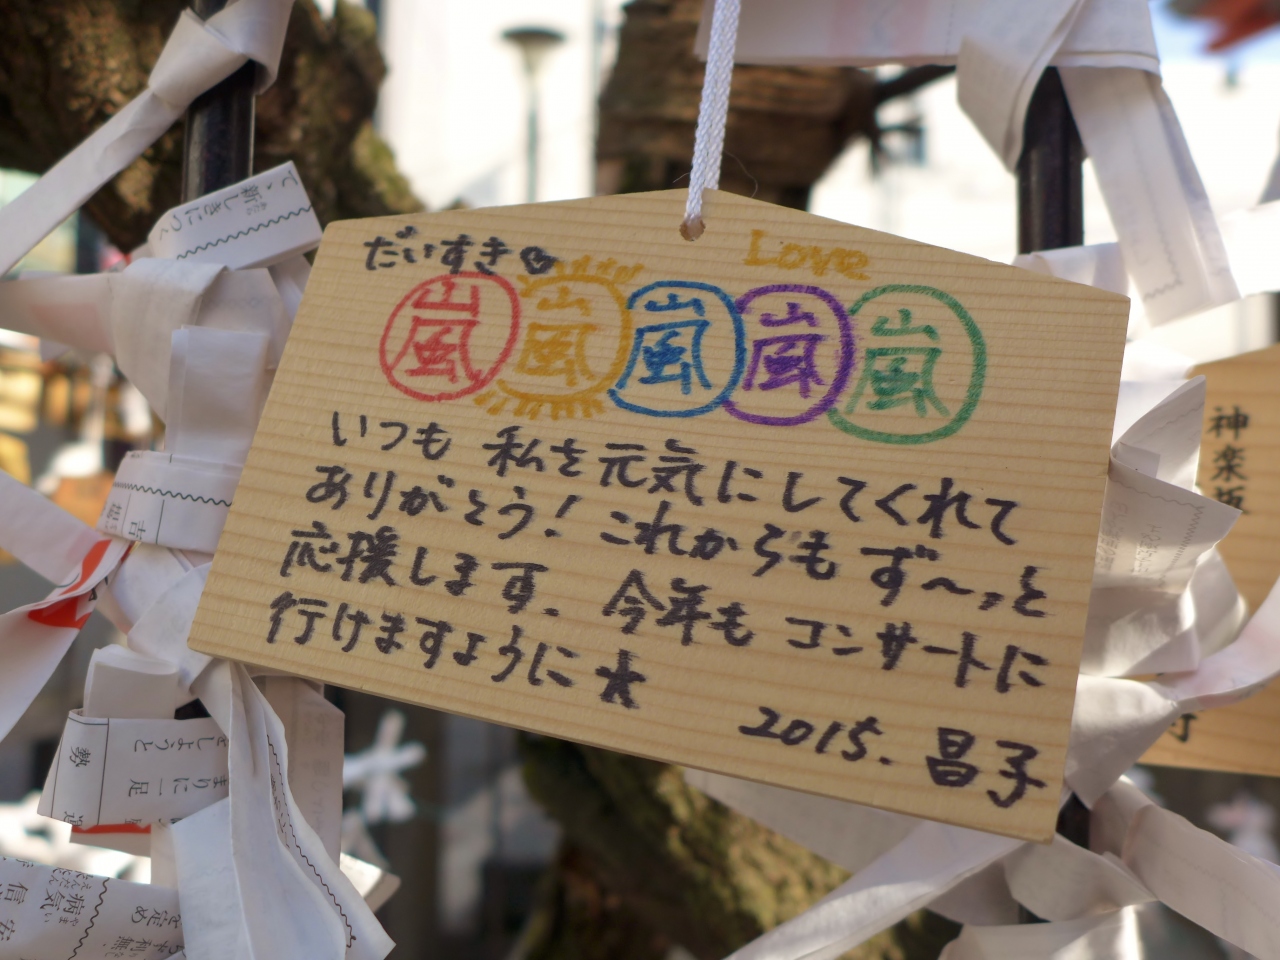 だいすき
Love
嵐 嵐 嵐 嵐 嵐
いつも 私を元気にしてくれて
ありがとう! これからも ず〜っと
応援します. 今年も コンサートに
行けますように★
2015. 昌子
神楽坂
新しきにつ
吉
勢
きしょうと
まりに一足
病気
信
安